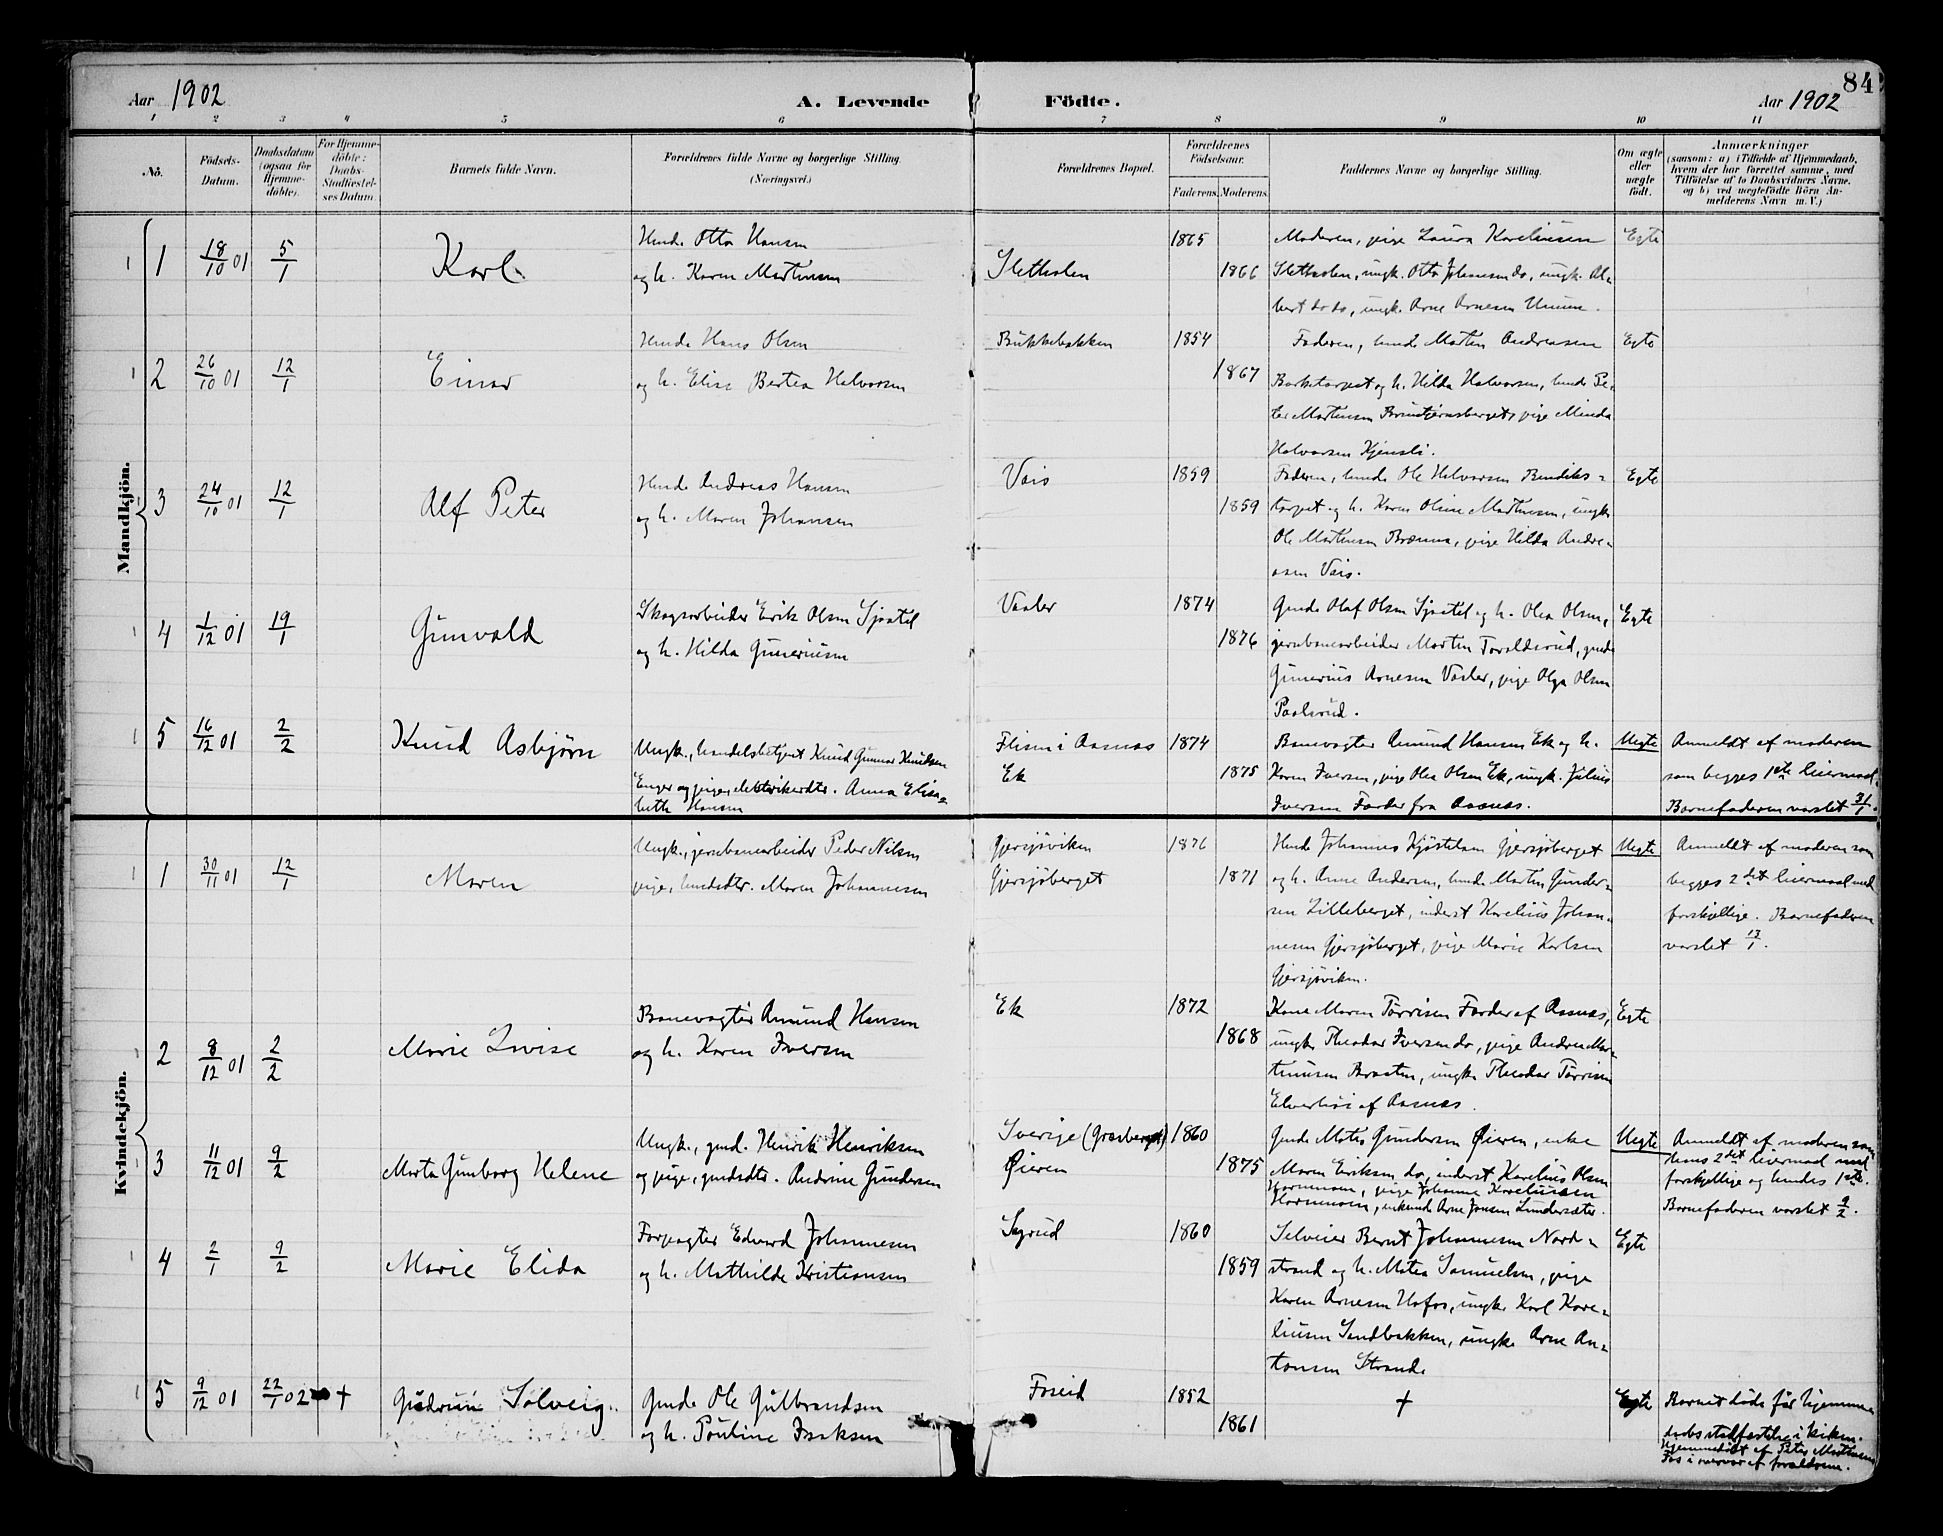 84
Aar 1902 A. Levende Födte. Aar 1902
1 2 3 4 5 6 7 8 9 10 11
No.
Födsels-
Datum.
Daabsdatum
(ogsaa for
Hjemme-
döbte).
For Hjemme-
döbte:
Daabs-
Stadfæstel-
ses Datum.
Barnets fulde Navn.
Forældrenes fulde Navne og borgerlige Stilling.
(Næringsvei.)
Forældrenes Bopæl.
Forældrenes
Födselsaar.
Faderens. Moderens.
Faddernes Navne og borgerlige Stilling.
Om ægte
eller
uægte
födt.
Anmærkninger
(saasom: a) i Tilfælde af Hjemmedaab,
hvem der har forrettet samme, med
Tilföielse af to Daabsvidners Navne,
og b) ved uægtefödte Börn An-
melderens Navn m. V.)
Mandkjön.
1 18/10 01 5/1 Karl
Husm. Otto Hansen
og h. Karen Martinsen
Sletholen
1865
1866
Moderen, pige Laura Kareliusen
Sletholen, ungk. Otto Johansen do, ungk. Al-
bert do do, ungk. Arne Arnesen
Egte
2 26/10 01 12/1 Einar
Hans Olsen
og h. Elise Bertea Halvorsen
Bukkebakken
1854
1867
Faderen, Martin Andreasen
og h. Hilda Halvorsen, Pe-
ter Martinsen pige Minda
Halvorsen Kjensli.
Egte
3 24/10 01 12/1 Alf Peter
Andreas Hansen
og h. Maren Johansen
Vois
1859
1859
Faderen, Ole Halvorsen Bendiks-
torpet og h. Karen Oline Mathisen, ungk.
Ole Martinsen Brænna, pige Hilda Andre-
asen Vois.
Egte
4 1/12 01 19/1 Gunvald
Skogsarbeider Erik Olsen Sjøatil
og h. Hilda Guneriusen
Vaaler
1874
1876
Gmds Olaf Olsen og h. Olea Olsen,
jernbanearbeider Martin Taraldsrud, gmds
Gunerius Arnesen Vaaler, pige Olga Olsen
Paalsrud.
Egte
5 16/12 01 2/2 Knud Asbjørn
Ungk., handelsbetjent Knud Gunnar Knudsen
Enger og pige, Anna Elisa-
beth Hansen
Flisen i Aasnæs
Ek
1874
1875
Banevogter Amund Hansen Ek og h.
Karen Iversen, pige Olea Olsen Ek, ungk. Julius
Iversen Førder fra Aasnæs.
Uegte
Anmeldt af moderen
som begges 1ste leiermaal.
Barnefaderen varslet 31/1.
Kvindekjön.
1 30/11 01 12/1 Maren
Ungk., jernbanearbeider Peder Nilsen
pige, Maren Johannesen
Gjersjøviken
Gjersjøberget
1876
1871
Johannes Kjøstelsen Gjersjøberget
og h. Anne Andersen, Martin Gunder-
sen Lilleberget, inderst Karelius Johan-
nesen Gjersjøberget, pige Marie Karlsen
Gjersjøviken.
Uegte
Anmeldt af moderen som
begges 2det leiermaal med
forskjellige. Barnefaderen
varslet 13/1.
2 8/12 01 2/2 Marie Lovise
Banevogter Amund Hansen
og h. Karen Iversen
Ek
1872
1868
Kone Maren Tørrisen Førder af Aasnæs,
ungk. Theodor Iversen do, pige Andrea Mar-
tinusen Braaten, ungk. Theodor Tørrisen
Elverhøi af Aasnæs.
Egte
3 11/12 01 9/2 Marta Gunborg Helene
Ungk., gmd. Henrik Henriksen
og pige, gmdsdtr. Andrine Gundersen
Sverige (Græsberget)
Øieren
1860
1875
Gmds Mates Gundersen Øieren, enke
Maren Eriksen do, inderst Karelius Olsen
pige Johanne Kareliusen
enkemd Arne Jonsen Lundersæter.
Uegte
Anmeldt af moderen som
dens 2det leiermaal med
forskjellige og hendes 1ste.
Barnefaderen varslet 9/2.
4 2/1 9/2 Marie Elida
Forpagter Edvard Johannesen
og h. Mathilde Kristiansen
Sagrud
1860
1859
Selveier Bernt Johannesen Nord-
strand og h. Matea Samuelsen, pige
Karen Arnesen Hofos, ungk. Karl Kare-
liusen Sandbakken, ungk. Arne An-
tonsen Strande
Egte
5 9/12 01 22/1 02 † Gudrun Solveig
Gmds Ole Gulbrandsen
og h. Pauline Isaksen
Foseid
1852
1861
†
Egte
Barnet døde før hjemme-
daabs stadfæstelse i kirken.
Hjemmedøbt af Peter Mathisen
Fos i overvær af forældrene.